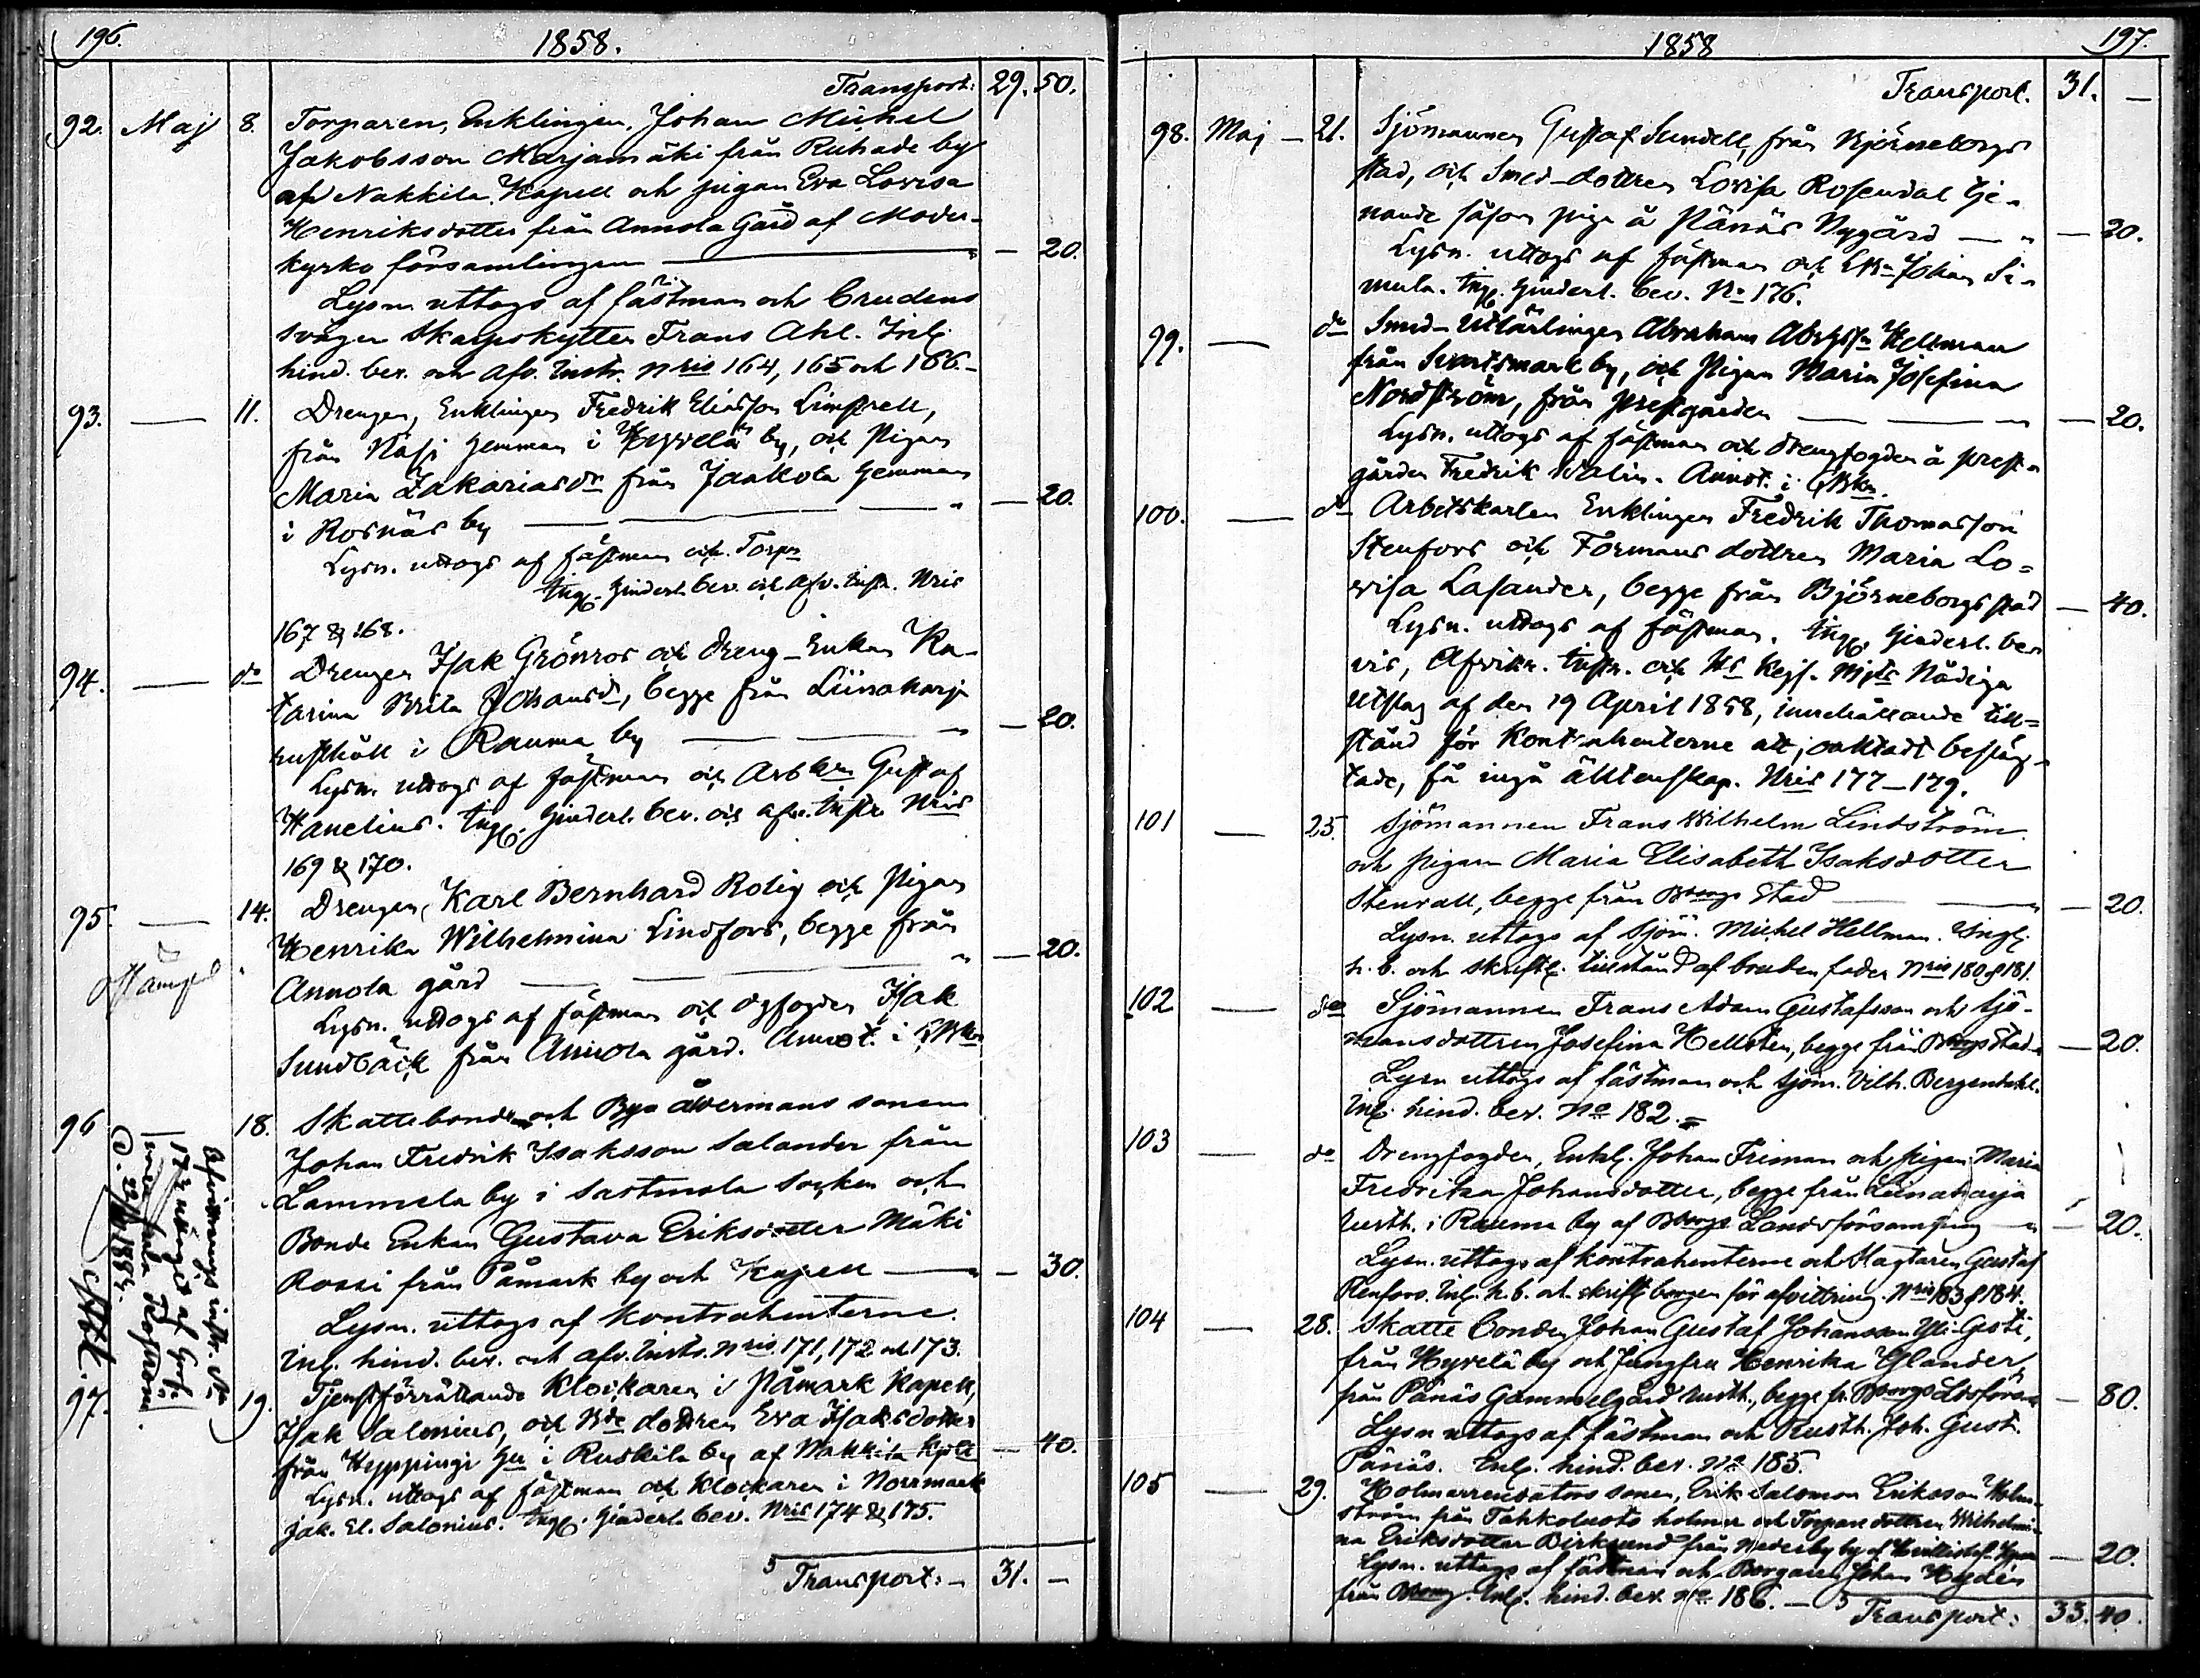 196.
1858.
Transport: 29. 50.
92. Maj 8. Torparen, Enklingen, Johan Michel
Jakobsson Marjamäki från Ruhade by
af Nakkila Kapell och pigan Eva Lovisa
Henriksdotter från Annola Gård af Moder-
kyrko församlingen — " — 20.
Lysn. uttogs af fästman och brudens
svåger Skarpskytten Frans Ahl. Inl.
hind. bev. och afv. Instr. Nris 164, 165 och 166.-
93. — 11. Drengen, Enklingen Fredrik Eliasson Limstrell,
från Näsi hemman i Hyvelä by, och Pigan
Maria Zakariasdr från Jaakola hemman
i Rosnäs by — — — " — 20.
Lysn. uttogs af fästman och Torpn
Ingl. hinderl. bev. och Afv. instr. Nris
167 & 168.
94. — do Drengen Isak Grönros och dreng-Enkan Ka-
tarina Brita Johansdr, begge från Liinaharja
rusthåll i Rauma by — — " — 20.
Lysn. uttogs af fästman och Arbkrn Gustaf
Hanelius. Ingl. hinderl. bev. och afv. instr. Nris
169 & 170.
95. — 14. Drengen, Karl Bernhard Rolig och Pigan
Henrika Wilhelmina Lindfors, begge från
Annola gård — — — " — 20.
Lysn. uttogs af fästman och dgfogden Isak
Sundbäck från Annola gård. Annot. i KBkn
96 18. Skattebonde och Bya åldermans sonen
Johan Fredrik Isaksson Salander från
Lammela by i Sastmola Socken och
Bonde Enkan Gustava Eriksdotter Mäki
Rossi från Påmark by och Kapell — " — 30.
Lysn. uttogs af Kontrahenterne.
Inl. hind. bev. och afv. Instr. Nris 171, 172 och 173.
Afvittrings instr. No
173 uttaget af
D. 1884.
97. 19. Tjenstförrättande Klockaren i Påmark Kapell,
Isak Salonius, och Bde dottren Eva Isaksdotter
från Hyppingi hn i Ruskila by af Nakkila Kpll — 40.
Lysn. uttogs af fästman och Klockaren i Norrmark
Jak. El. Salonius. Ingl. hinderl. bev. Nris 174 & 175.
Transport: - 31. -
197.
1858
Transport. 31. —
98. Maj — 21. Sjömannen Gustaf Sundell, från Björneborgs
stad, och Smed-dottren Lovisa Rosendal tje-
nande såsom piga å Pänäs Nygård — " — 20.
Lysn. uttogs af fästman och Johan Si-
mula. Ingl. hinderl. bev. No 176.
99. — do Smed-Utlärlingen Abraham Abrhsn Hellman
från Svartsmark by, och Pigan Maria Josefina
Nordström, från prestgården — — " — 20.
Lysn. uttogs af fästman och drengfogden å prest-
gården Fredrik Walin. Annot. i KBkn.
100. — do Arbetskarlen Enklingen Fredrik Thomasson
Stenfors och Formans dottren Maria Lo=
visa Lasander, begge från Björneborgs stad — 40.
Lysn. uttogs af fästman. Ingl. hinderl. be-
vis, Afvittr. instr. och Hs Kejs. Mjts Nådiga
Utslag af den 19 April 1858, innehållande till=
stånd för Kontrahenterne att, oaktadt besläg-
tade, få ingå äktenskap. Nris 177-179.
101 — 25. Sjömannen Frans Wilhelm Lindström
och pigan Maria Elisabeth Isaksdotter
Stenvall, begge från Bborgs Stad — " — 20.
Lysn. uttogs af Sjöm. Michel Hellman. Ingl.
h. b. och skriftl. tillstånd af brudens fader Nris 180 & 181.
102 — do Sjömannen Frans Adam Gustafsson och Sjö-
mansdottren Josefina Hellsten, begge från Bborgs Stad — 20.
Lysn uttogs af fästman och Sjöm. Vilh. Bergendahl.
Inl. hind. bev. No 182.
103 — do Drengfogden, Enkl. Johan Friman och pigan Maria
Fredrika Johansdotter, begge från Liinaharja
Rusth. i Rauma by af Bborgs Landsförsamling — " — 20.
Lysn. uttogs af kontrahenterne och Slagtaren Gustaf
Renfors. Inl. h. b. och skriftl borgen för afvittring. Nris 183 & 184.
104 — 28. Skatte bonden Johan Gustaf Johansson Yli-Gesti,
från Hyvelä by och Jungfru Henrika Ylander,
från Pänäs Gammelgård Rusth., begge fr. Bborgs Ldsförs. — 80.
Lysn uttogs af fästman och Rusth. Joh. Gust.
Pänäs. Inl. hind. bev. No 185.
105 — 29. Holmarrendators sonen, Erik Salomon Eriksson Holm-
ström från Tahkoluoto holme och Torpare dottren Wilhelmi-
na Eriksdotter Birklund från Nederby by af — 20.
Lysn. uttogs af fästman och Borgaren Johan Hydén
från Bborg. Inl. hind. bev. No 186. —
Transport: 33. 40.